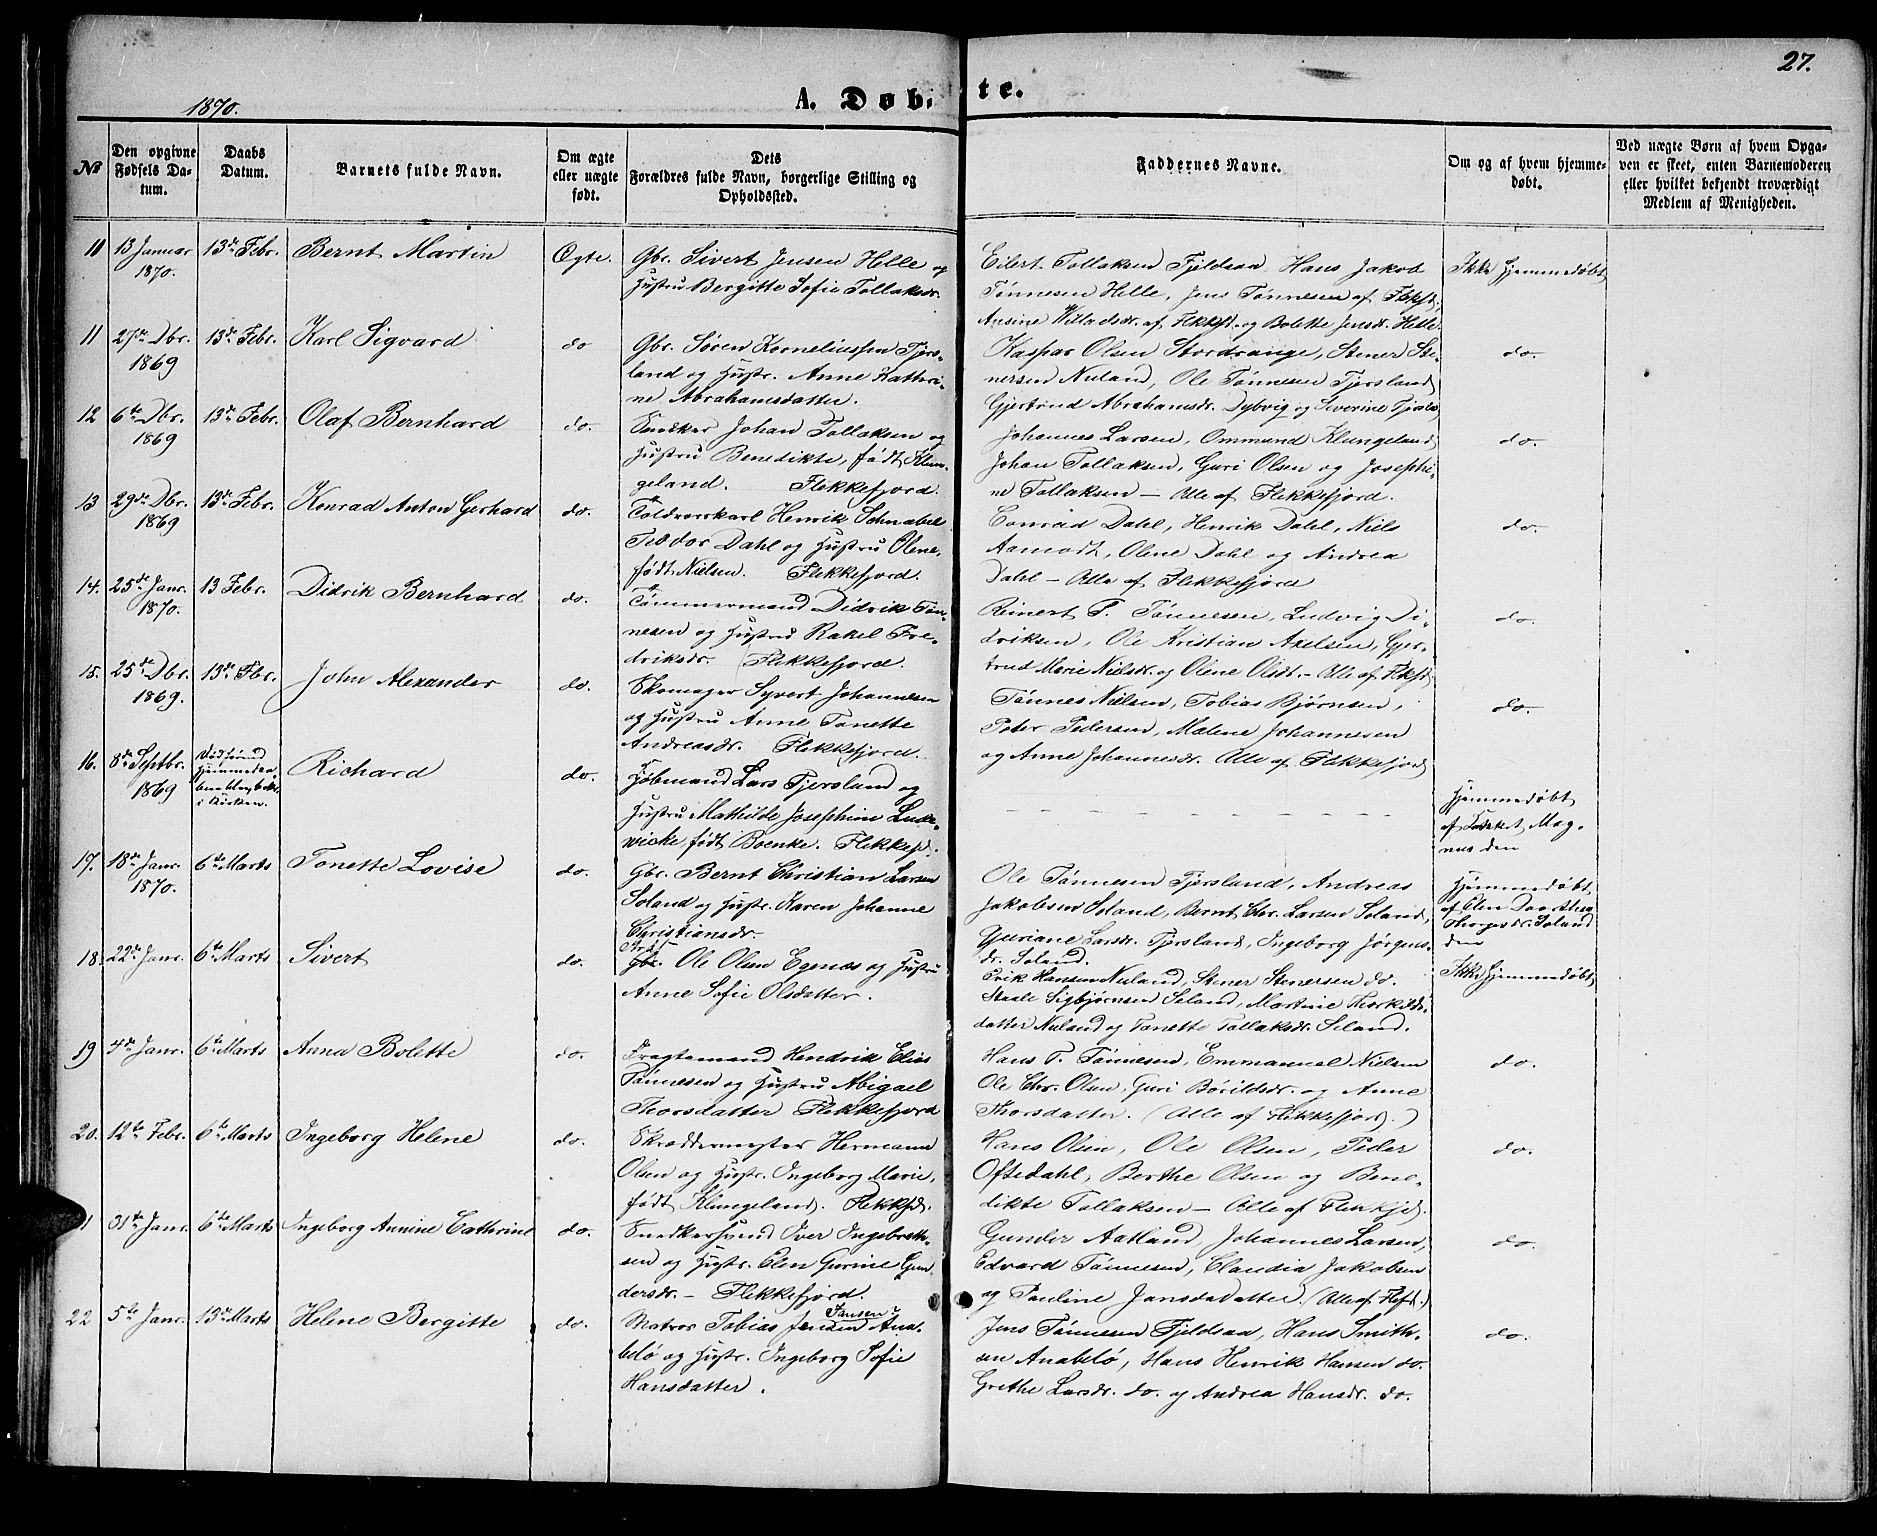 27.
1870.
A. Døb- te.
No
Den opgivne Fødsels Datum.
Daabs Datum.
Barnets fulde Navn.
Om ægte eller uægte født.
Dets Forældres fulde Navn, borgerlige Stilling og Opholdssted.
Faddernes Navne.
Om og af hvem hjemmedøbt.
Ved uægte Børn af hvem Opgaven er skeet, enten Barnemoderen eller hvilket bekjendt troværdigt Medlem af Menigheden.
11 13 Januar 1870. 13de Febr. Bernt Martin Ægte.
Gbr. Sivert Jensen Helle og
Hustru Bergitte Sofie Tollaksdr.
Eilert Tollaksen Fjeldsaa, Hans Jakob
Tønnesen Helle, Jens Tønnesen af Flekkfd,
Ansine Willadsdr. af Flekkfd. og Bolette Jensdr. Helle.
Ikke hjemmedøbt
11 27de Dbr. 1869 13de Febr. Karl Sigvard do
Gbr. Søren Korneliussen Tjørs-
land og Hustr. Anne Kathri-
ne Abrahamsdatter.
Kaspar Olsen Stordrange, Stener Ste-
nersen Nuland, Ole Tønnesen Tjersland,
Gjertrud Abrahamsdr. Dybvig og Severine Tjørsl.
do.
12 6te Dbr. 1869 13de Febr. Olaf Bernhard do.
Snedker Johan Tollaksen og
Hustru Benedikte, født Klun-
geland. Flekkefjord.
Johannes Larsen, Ommund Klungeland,
Johan Tollaksen, Guri Olsen og Josephi-
ne Tollaksen — Alle af Flekkefjord.
do.
13 29de Dbr. 1869 13de Febr. Konrad Anton Gerhard do.
Toldroerskarl Henrik Schnabel
Teodor Dahl og Hustru Olene,
født Nielsen. Flekkefjord.
Conrad Dahl, Henrik Dahl, Niels
Aamodt, Olene Dahl og Andrea
Dahl — Alle af Flekkefjord
do.
14. 25de Janr. 1870. 13 Febr. Didrik Bernhard do.
Tømmermand Didrik Tøn-
nesen og Hustru Rakel Fre-
driksdr. Flekkefjord.
Reinert T. Tønnesen, Ludvig Di-
driksen, Ole Kristian Axelsen, Gjer-
trud Marie Nielsdr. og Olene Olsdr. — Alle af Flekkfd,
do.
15. 25de Dbr. 1869. 13de Fbr. John Alexander do.
Skomager Syvert Johannesen
og Hustru Anne Tonette
Andreasdr. Flekkefjord.
Tønnes Nielsen, Tobias Bjørnsen,
Peter Pedersen, Malene Johannesen
og Anne Johannesdr. Alle af Flekkefjord
do.
16. 8de Septbr. 1869 Richard do.
i Kirken.
Kjøbmand Lars Tjersland og
Hustru Mathilde Josephine Lude-
wicke, født Boenke. Flekkefd.
— — — — — — — — —
Hjemmedøbt
af Magnus den
17. 18de Janr. 1870. 6te Marts Tonette Lovise do.
Gbr. Bernt Christian Larsen
Soland og Hustr. Karen Johanne
Christiansdr.
Ole Tønnesen Tjersland, Andreas
Jakobsen Soland, Bernt Chr. Larsen Soland,
Guriane Larsdr. Tjersland, Ingeborg Jørgens-
dr. Soland.
Hjemmedøbt
af Elen Dorthea
Soland
den
18. 22de Janr. 6te Marts Sivert do.
Gbr. Ole Olsen Egenæs og Hustru
Anne Sofie Olsdatter.
Erik Hansen Nuland, Stener Stenersen do.
Staale Sigbjørnsen Seland, Martine Thorkilds-
datter Nuland og Tonette Tollaksdr. Seland.
Ikke hjemmedøbt
19 4de Janr. 6te Marts Anna Bolette do.
Fragtemand Hendrik Elias
Tønnesen og Hustru Abigael
Thorsdatter Flekkefjord
Hans T. Tønnesen, Emmanuel Nielsen
Ole Chr. Olsen, Guri Børildsdr. og Anne
Thorsdatter. (Alle af Flekkefjord.)
do.
20. 12te Febr. 6te Marts Ingeborg Helene do.
Skræddermester Hermann
Olsen og Hustr. Ingeborg Marie,
født Klungeland. Flekkefd.
Hans Olsen, Ole Olsen, Peder
Oftedahl, Berthe Olsen og Bene-
dikte Tollaksen — Alle af Flekkefd.
do.
1 31te Janr. 6te Marts Ingeborg Annine Cathrine do.
Snedkersvend Iver Ingebreth-
sen og Hustr. Elen Gurine Gun-
dersdr. — Flekkefjord.
Gunder Aatland, Johannes Larsen,
Edvard Tønnesen, Claudia Jakobsen
og Pauline Jansdadatter. (Alle af Flekfd.)
do.
22 5te Janr. 13de Marts Helene Bergitte do.
Matros Tobias Jensen Jansen Ana-
belø og Hustr. Ingeborg Sofie
Hansdatter.
Jens Tønnesen Fjeldsaa, Hans Smith-
sen Anabelø, Hans Henrik Hansen do.
Grethe Larsdr. do. og Andrea Hansdr. do.
do.